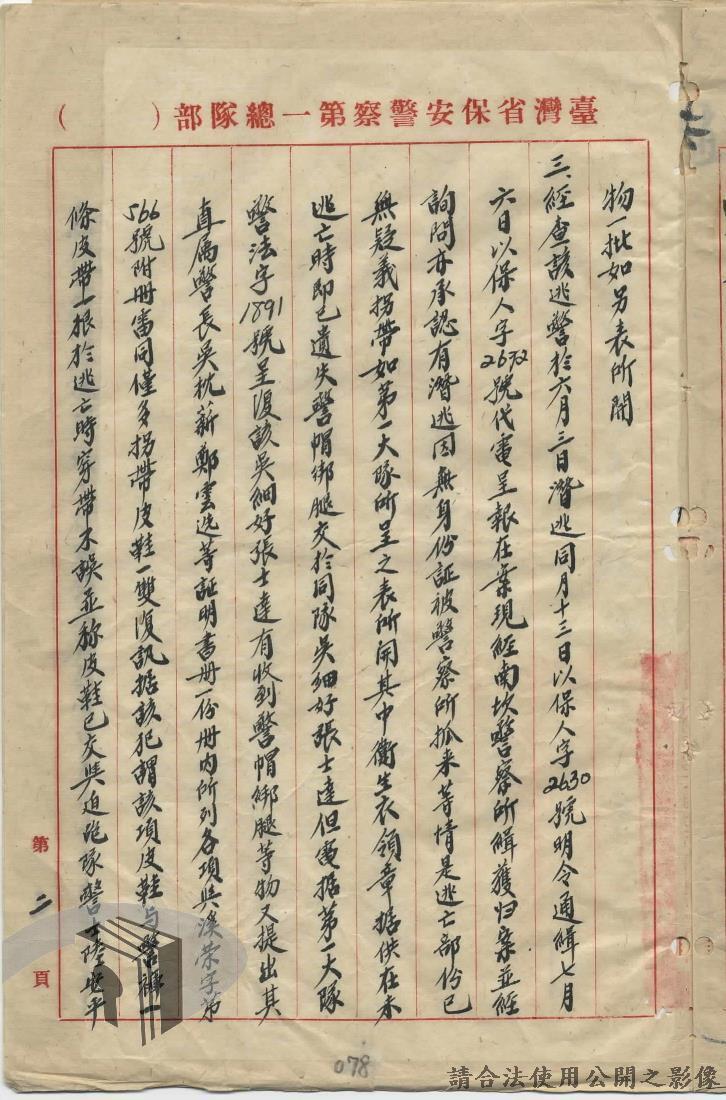 臺灣省保安警察第一總隊部（　　）
物一批如另表所開
三、經查該逃警於六月三日潛逃同月十三日以保人字2630號明令通緝七月
六日以保人字2672號代電呈報在案現經南坎警察所緝獲归案並經
詢問亦承認有潛逃因無身份証被警察所抓来等情是逃亡部份已
無疑義拐帶如第一大隊所呈之表所開其中衛生衣領章据供在未
逃亡時即已遺失警帽綁腿交於同隊吳細好張士達但電据第一大隊
警法字1891號呈復該吳細好張士達有收到警帽綁腿等物又提出其
直属警長吳枕新鄭雲选等証明書册一份册内所列各項與溪荣字第
566號附册畧同僅多拐帶皮鞋一雙復訊据該犯謂該項皮鞋与警褲一
條皮帶一根於逃亡時穿帶不誤並称皮鞋已交與迫跑隊警士陸
第二頁
078
請合法使用公開之影像